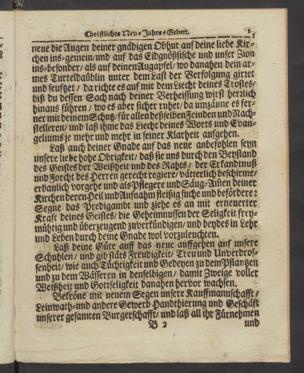 Christliches Neu-Jahrs-Gebett.
neue die Augen deiner gnädigen Obhut auf deine liebe Kir-
chen ins-gemein/ und auf das Eidgnößische und unser Zion
ins-besonder/ als auf deinen Augapfel/ wo danahen dein ar-
mes Turteldäublin unter dem Last der Verfolgung girret
und seufzet/ da richte es auf mit dem Liecht deines Trostes/
biß du dessen Sach nach deiner Verheissung wirst herrlich
hinaus führen/ wo es aber sicher ruhet/ da umzäune es fer-
ner mit deinem Schutz/ für allen deßselben Feinden und Nach-
stelleren/ und laß ihme das Liecht deines Worts und Evan-
geliums je mehr und mehr in seiner Klarheit aufgehen.
Laß auch deiner Gnade auf das neue anbefohlen seyn
unsere liebe hohe Obrigkeit/ daß sie uns durch den Verstand
des Geistes der Weißheit und des Rahts/ der Erkandtnuß
und Forcht des Herren gerecht regiere/ vätterlich beschirme/
erbaulich vorgehe und als Pflegere und Säug-Ammen deiner
Kirchen deren Heil und Aufnahm fleißig suche und beförderet:
Segne das Predigamt und ziehe es an mit erneuerter
Kraft deines Geistes/ die Geheimnussen der Seligkeit frey-
mühtig und überzeugend zuverkündigen/ und beydes in Lehr
und Leben durch deine Gnade wol vorzuleuchten.
Laß deine Güte auff das neue auffgehen auf unsere
Schuhlen/ und gib stäts Freudigkeit/ Treu und Unverdros-
senheit/ wie auch Tüchtigkeit und Gedeyen zu dem Pflantzen
und zu dem Wässeren in denselbigen/ damit Zweige voller
Weißheit und Gottseligkeit danahen hervor wachsen.
Bekröne mit neuem Segen unsere Kauffmannschafft/
Leinwath- und andere Gewerb Handthierung und Geschäft
unserer gesamten Burgerschafft/ und laß all ihr Fürnehmen
B 2
und